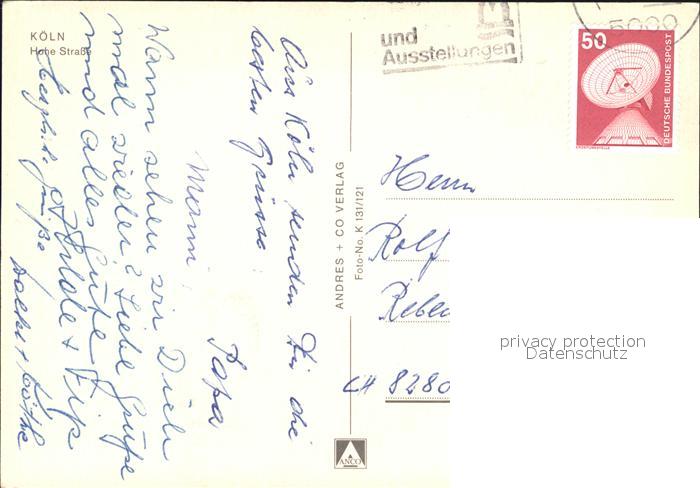 KÖLN
Hohe Straße
Aus Köln senden Dir die
besten Grüsse
Mami
Papa
Wann sehen wir Dich
mal wieder? Liebe Grüße
und alles Gute
Hilde +
Herzliche Grüße
ANDRES + CO VERLAG
Foto-No. K 131/121
ANCO
und
Ausstellungen
5000
50
DEUTSCHE BUNDESPOST
ERDFUNKSTELLE
Herrn
Rolf
Reben
CH 8280
privacy protection
Datenschutz